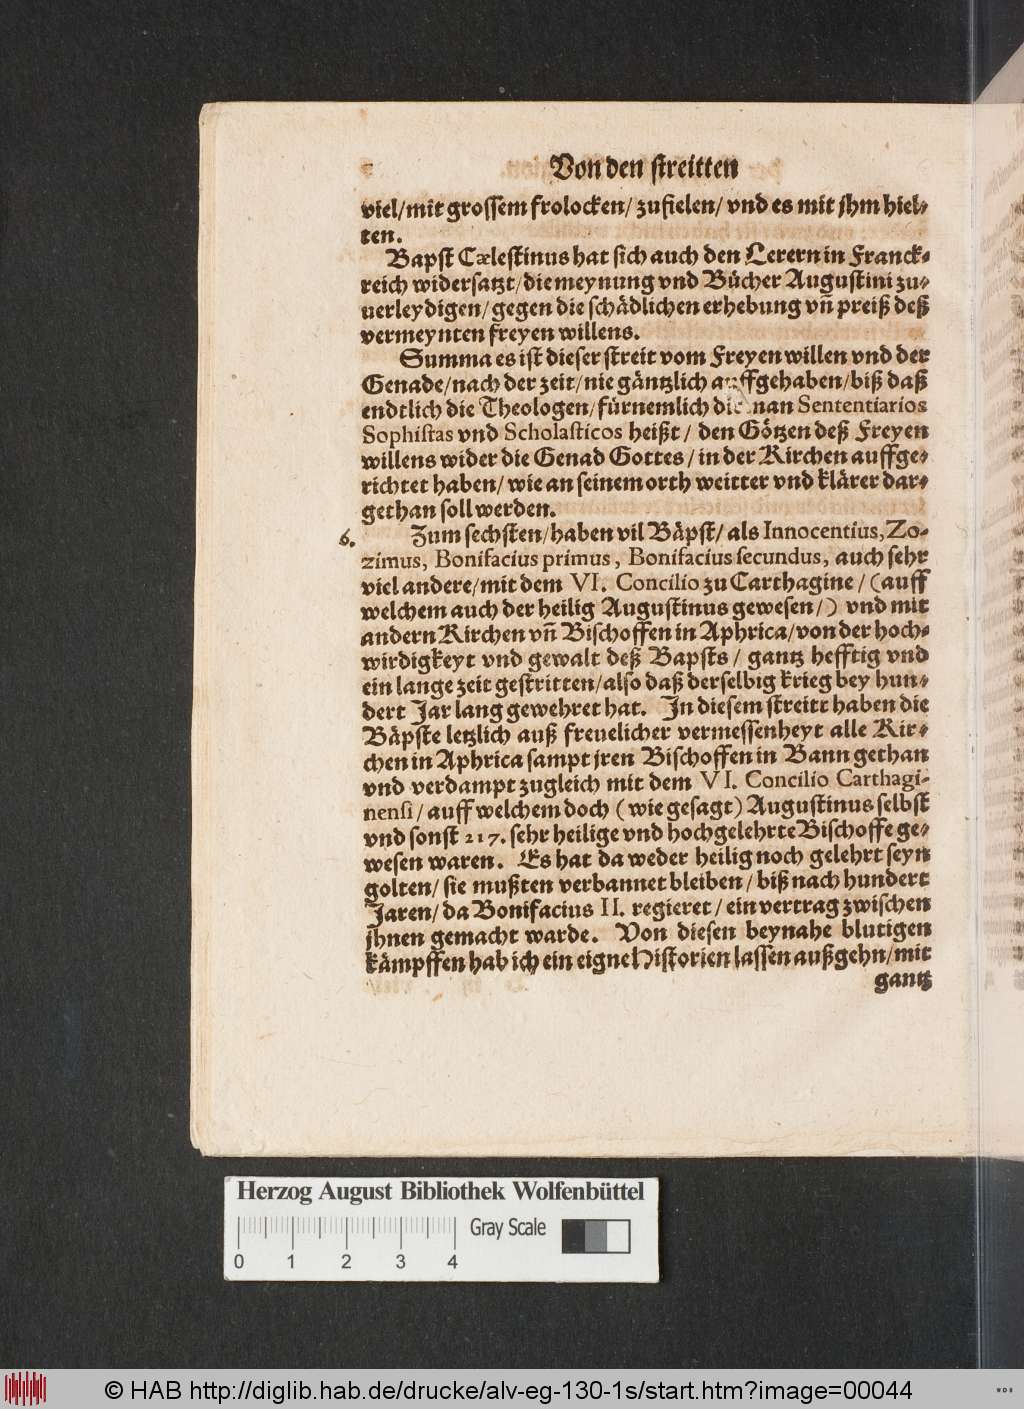 Von den streitten
viel/mit grossem frolocken/ zufielen/ vnd es mit jhm hiel-
ten.
Bapst Cælestinus hat sich auch den Lerern in Franck-
reich widersatzt/die meynung vnd Bücher Augustini zu-
uerleydigen/gegen die schädlichen erhebung vñ preiß deß
vermeynten freyen willens.
Summa es ist dieser streit vom Freyen willen vnd der
Genade/nach der zeit/nie gäntzlich auffgehaben/biß daß
endtlich die Theologen/fürnemlich die man Sententiarios
Sophistas vnd Scholasticos heißt/ den Götzen deß Freyen
willens wider die Genad Gottes/in der Kirchen auffge-
richtet haben/ wie an seinem orth weitter vnd klärer dar-
gethan soll werden.
6. Zum sechsten/haben vil Bäpst/ als Innocentius, Zo-
zimus, Bonifacius primus, Bonifacius secundus, auch sehr
viel andere/mit dem VI. Concilio zu Carthagine/(auff
welchem auch der heilig Augustinus gewesen/) vnd mit
andern Kirchen vñ Bischoffen in Aphrica/von der hoch-
wirdigkeyt vnd gewalt deß Bapsts/ gantz hefftig vnd
ein lange zeit gestritten/also daß derselbig krieg bey hun-
dert Jar lang gewehret hat. In diesem streitt haben die
Bäpste letzlich auß freuelicher vermessenheyt alle Kir-
chen in Aphrica sampt jren Bischoffen in Bann gethan
vnd verdampt zugleich mit dem VI. Concilio Carthagi-
nensi/auff welchem doch (wie gesagt) Augustinus selbst
vnd sonst 217. sehr heilige vnd hochgelehrte Bischoffe ge-
wesen waren. Es hat da weder heilig noch gelehrt seyn
golten/sie mußten verbannet bleiben/biß nach hundert
Jaren/da Bonifacius II. regieret/ein vertrag zwischen
jhnen gemacht warde. Von diesen beynahe blutigen
kämpffen hab ich ein eigne Historien lassen außgehn/mit
gantz
Herzog August Bibliothek Wolfenbüttel
Gray Scale
0 1 2 3 4
© HAB http://diglib.hab.de/drucke/alv-eg-130-1s/start.htm?image=00044